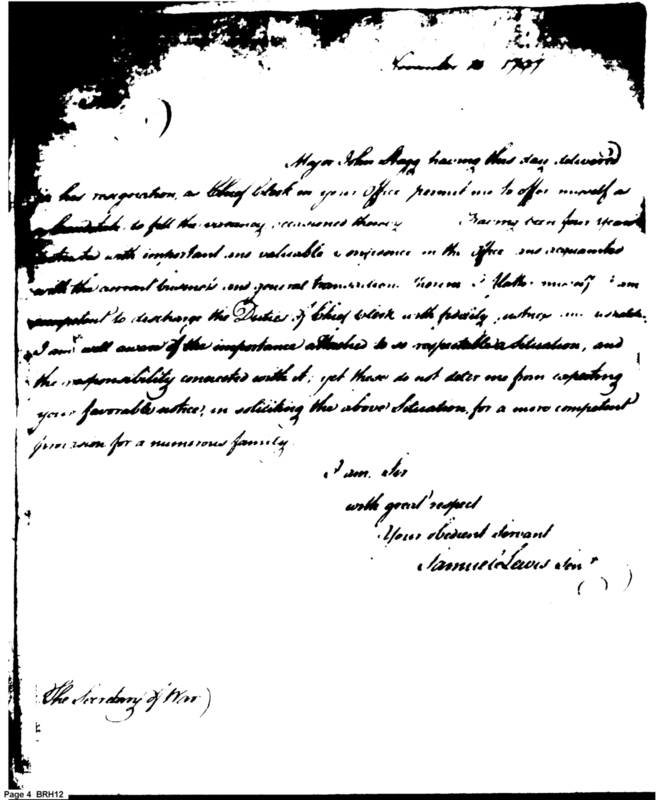 November 10 1797
Major John Stagg having this day delivered
in his resignation, as Chief Clerk in your Office permit me to offer myself as
a Candidate to fill the vacancy occasioned thereby Having been four years
with important and valuable in the office and acquainted
with the current business and general transactions flatter myself I am
competent to discharge the Duties of Chief Clerk with fidelity
I am well aware of the importance attached to so respectable a Situation, and
the responsibility connected with it; yet these do not deter me from expecting
your favorable notice, in soliciting the above Situation, for a more competent
provision for a numerous family
I am Sir
with great respect
Your obedient Servant
Samuel Lewis Senr
The Secretary of War
Page 4 BRH12